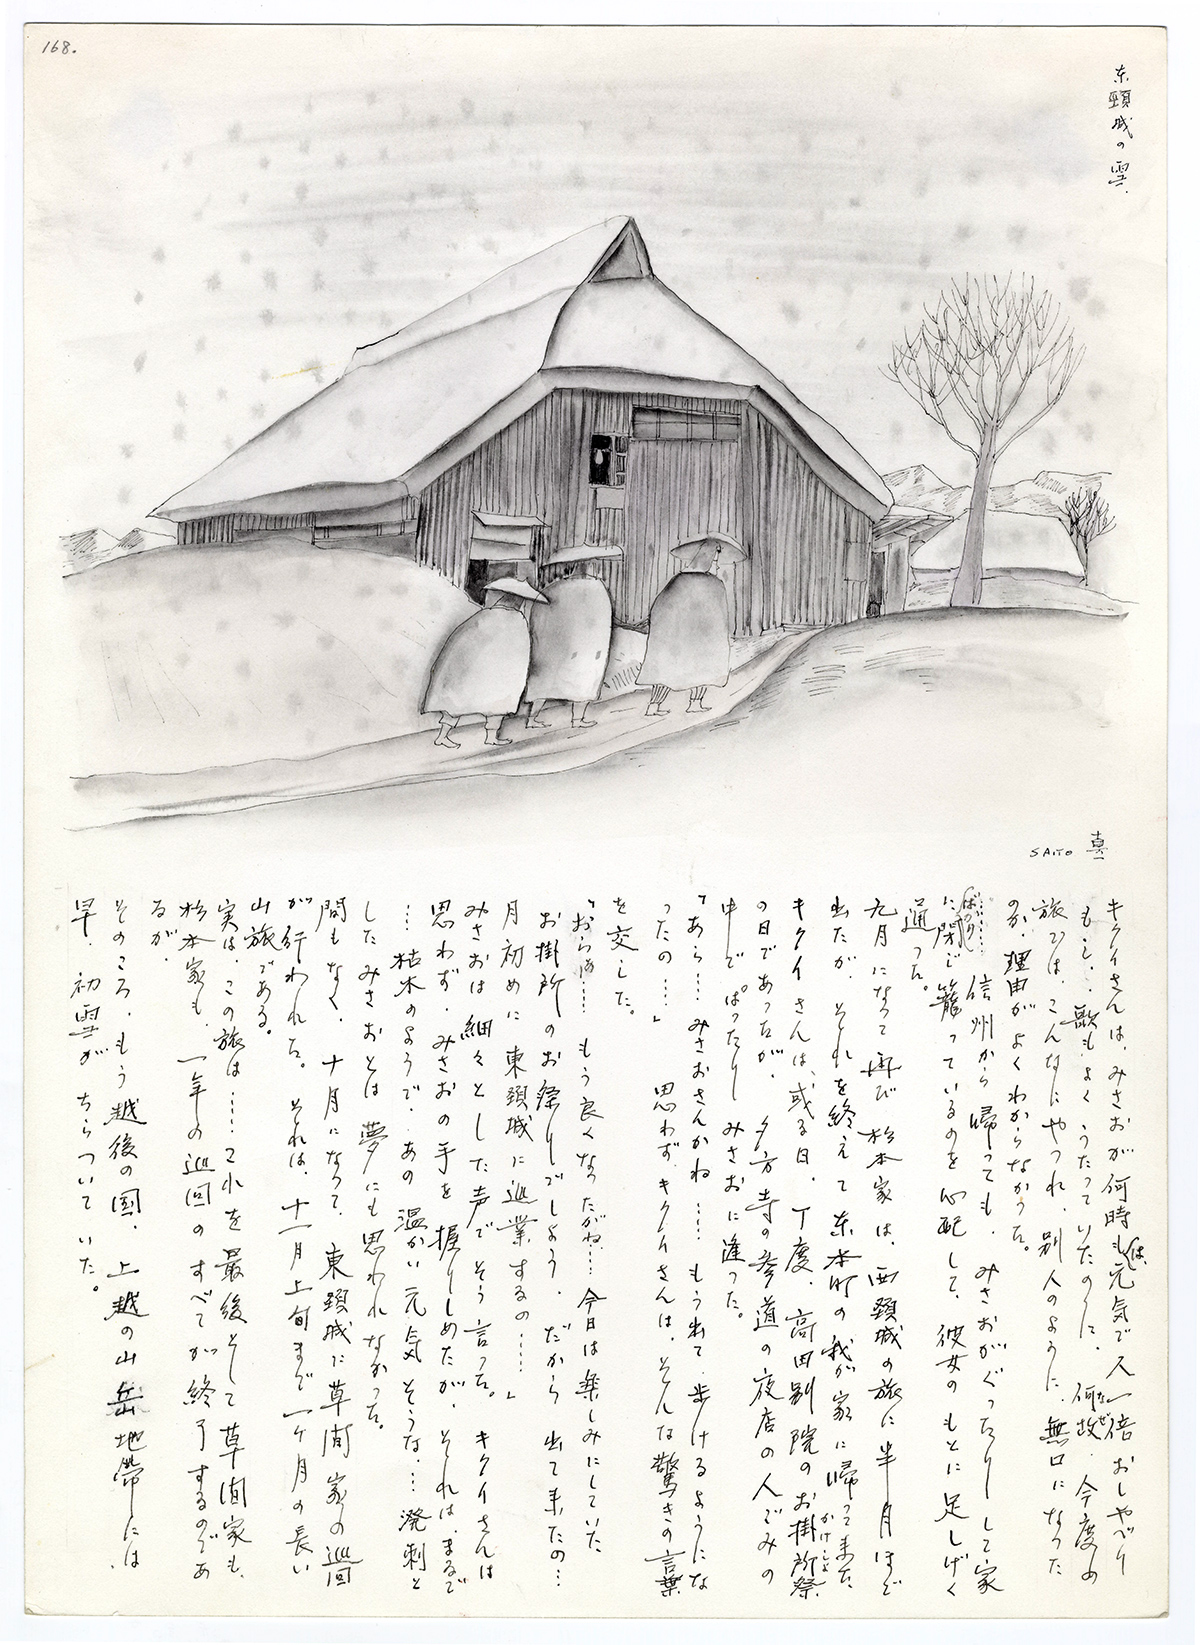 168.
東頸城の雪.
SAITO 真一
キクイさんは、みさおが何時もは、元気で人一倍おしゃべり
もし、歌もよくうたっていたのに、何故、今度の
なぜ
旅では、こんなにやつれ、別人のように、無口になった
のか、理由がよくわからなかった。
……信州から帰っても、みさおがぐったりして家
ばっかり
に閉じ籠っているのを心配して、彼女のもとに足しげく
通った。
九月になって再び杉本家は、西頸城の旅に半月ほど
出たが、それを終えて東本町の我が家に帰って来た
キクイさんは、或る日、丁度、高田別院のお掛所祭
かけしよ
の日であったが、夕方寺の参道の夜店の人ごみの
中でぱったりみさおに逢った。
「あら……みさおさんかね……もう出て歩けるようにな
ったの……」 思わず、キクイさんは、そんな驚きの言葉
を交した。
「おらぁ……もう良くなったがね……今日は楽しみにしていた
お掛所のお祭りでしょう、だから出て来たの…
月初めに東頸城に巡業するの……」
みさおは細々とした声でそう言った。キクイさんは
思わず、みさおの手を握りしめたが、それは、まるで
…枯木のようで、あの温かい元気そうな…溌剌と
したみさおとは夢にも思われなかった。
間もなく、十月になって、東頸城に草間家の巡回
が行われた。それは、十一月上旬まで一ヶ月の長い
山旅である。
実は、この旅は……これを最後として草間家も、
杉本家も、一年の巡回のすべてが終了するのであ
るが、
そのころ、もう越後の国、上越の山岳地帯には、
早、初雪がちらついていた。